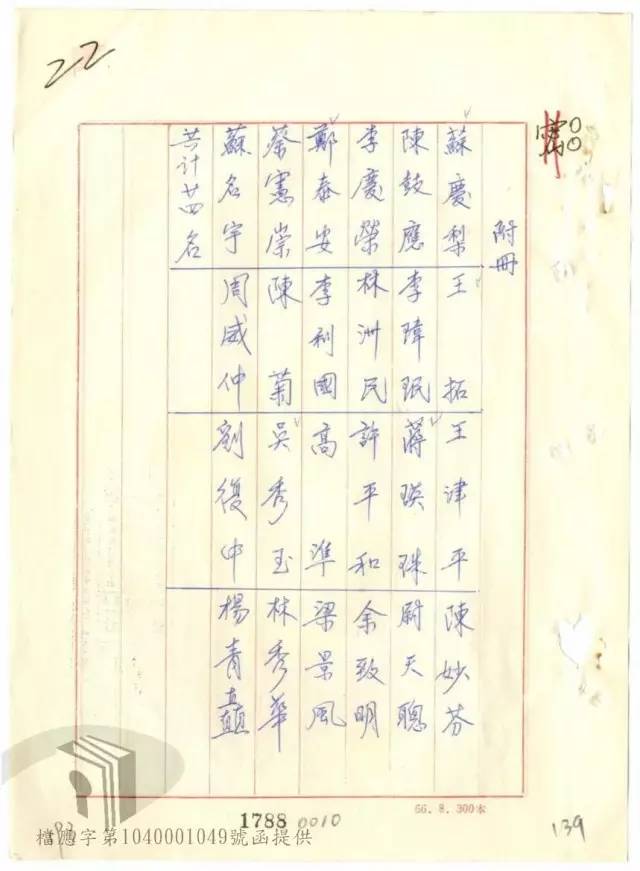 22
附冊
蘇慶梨 王拓 王津平 陳妙芬
陳鼓應 李瑋珉 蔣瑛珠 尉天聰
李慶榮 林洲民 許平和 余致明
鄭泰安 李利國 高準 梁景風
蔡憲崇 陳菊 吳秀玉 林秀華
蘇名宇 周威仲 劉復中 楊青矗
共计廿四名
66.8.300本
1788 0010
139
檔應字第1040001049號函提供